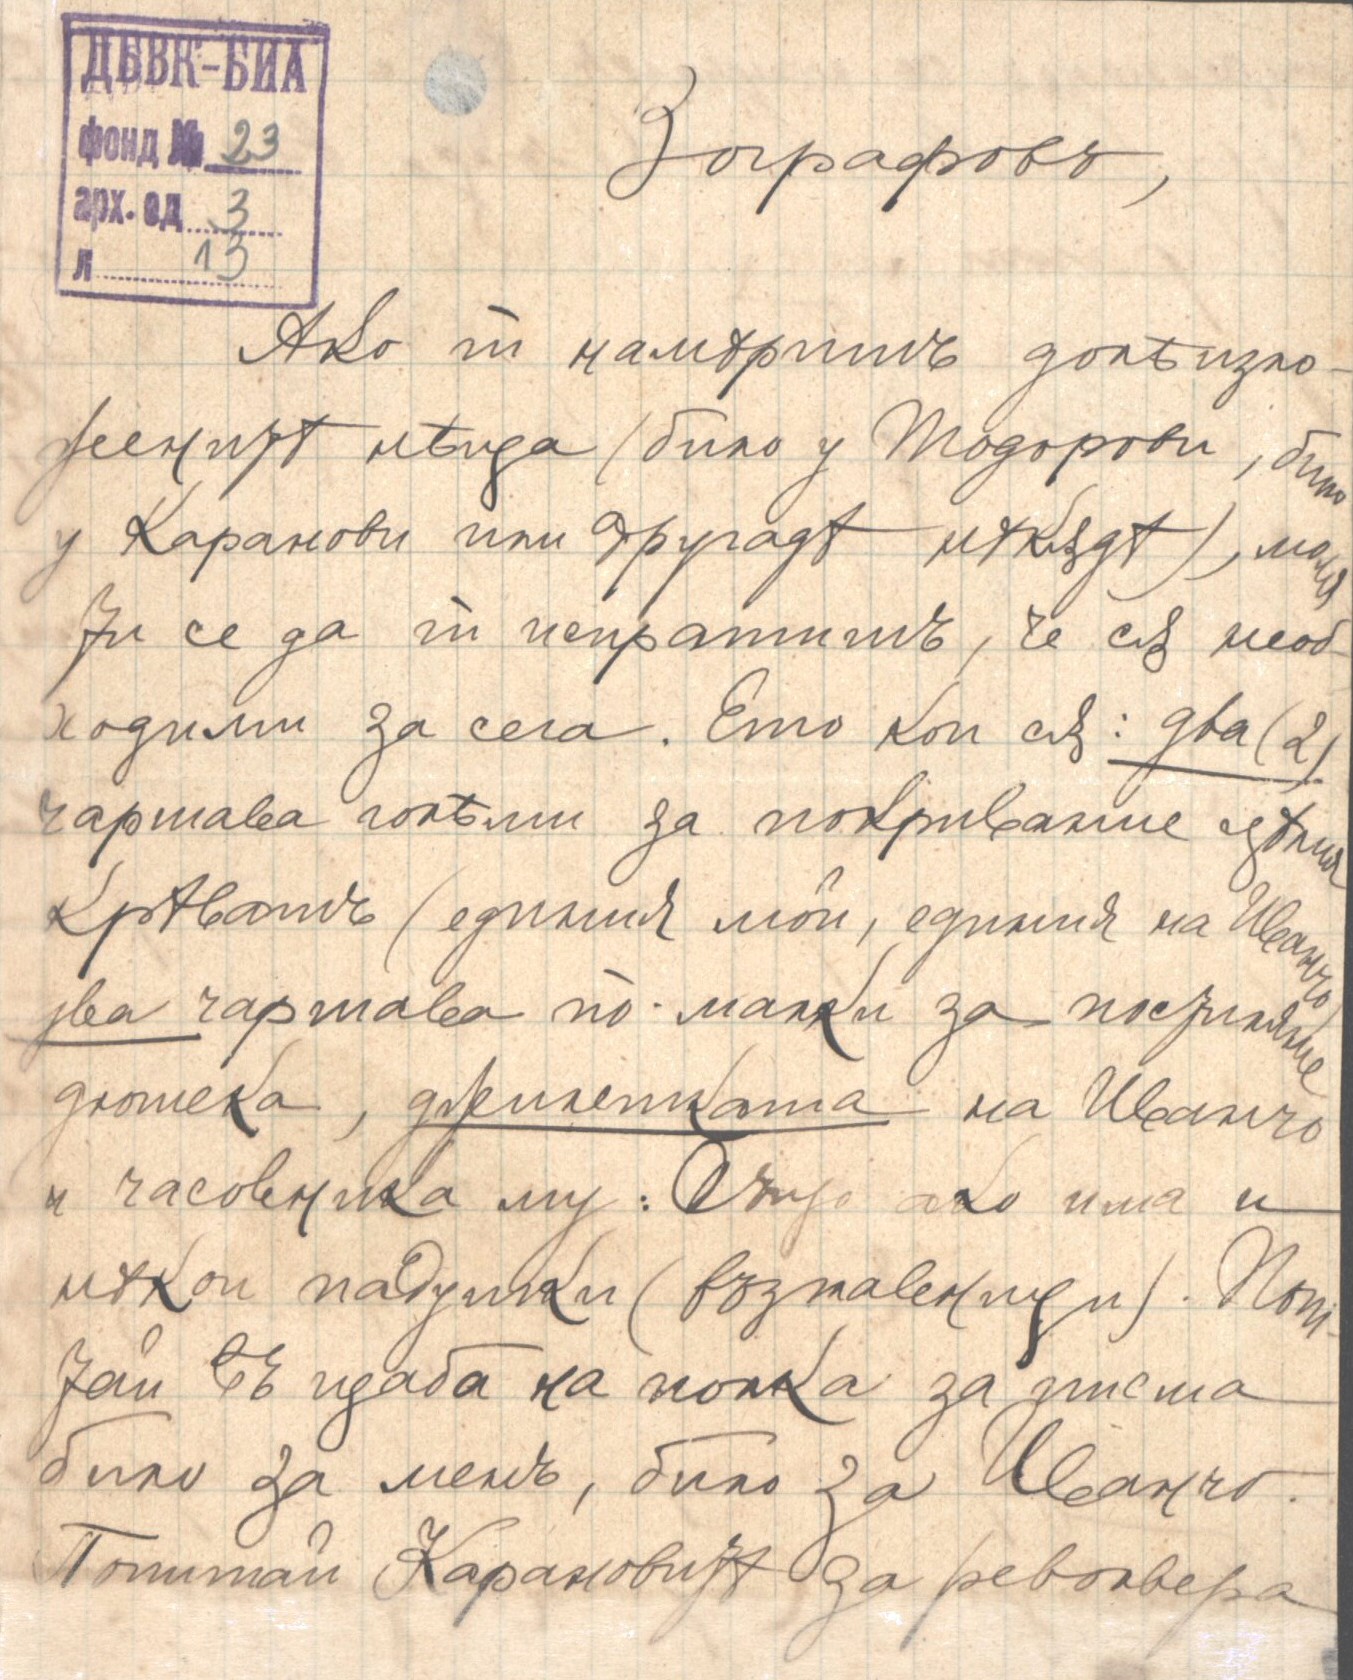 ДБВК-БИА
фонд № 23
арх. ед 3
л 13
Зографовъ,
Ако ги намѣришъ долѣизло-
женитѣ нѣща (било у Тодорови, било
у Каранови или другадѣ нѣкѫдѣ), моля
ти се да ги испратишъ, че сѫ необ-
ходими за сега. Ето кои сѫ: два (2)
чаршава голѣми за покриванье цѣлия
крѣватъ (единия мой, единия на Иванчо
два чаршава по-малки за постиляние
дюшека, джилетката на Иванчо
и часовника му: Също ако има и
нѣкои падушки (възглавници). Попи-
тай въ щаба на полка за писма
било за менъ, било за Иванчо.
Попитай Карановитѣ за револвера